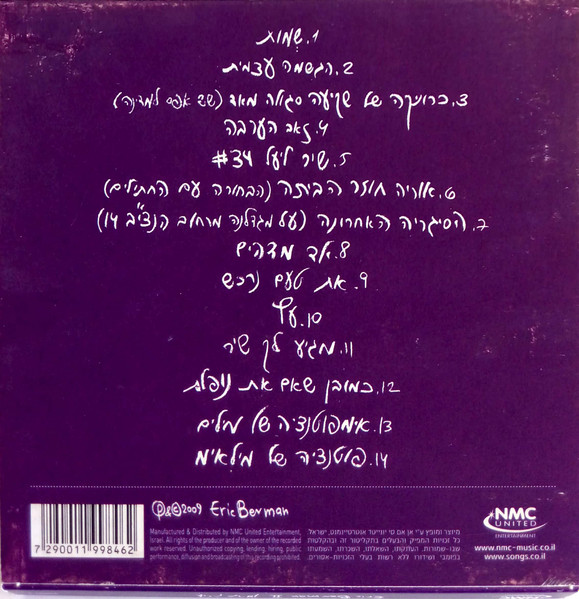 1. שְׁמוֹת
2. הגשמה עצמית
3. כרוניקה של שקיעה סגולה מאד (שש אפס למדינה)
4. זאב הערבה
5. שיר ליעל #34
6. אוריה חוזר הביתה (הבחורה עם החתולים)
7. הסיגריה האחרונה (על מגדלנה מרחוב הנצי"ב 14)
8. אד מדהים
9. את טעם נרכש
10. עץ
11. מגיע לך שיר
12. כמובן שאם את נופלת
13. אימפוטנציה של מילים
14. פוטנציה של מילאימ
℗&©2009 Eric Berman
7 290011 998462
Manufactured & Distributed by NMC United Entertainment,
Israel. All rights of the producer and of the owner of the recorded
work reserved. Unauthorized copying, lending, hiring, public
performance, diffusion and broadcasting of this recording prohibited.
מיוצר ומופץ ע"י אן אם סי יונייטד אנטרטיינמנט, ישראל.
כל זכויות המפיק והבעלים בתקליטור זה ובהקלטות
שבו-שמורות. העתקתו, השאלתו, השכרתו, השמעתו
בפומבי ושידורו ללא רשות בעלי הזכויות-אסורים.
NMC
UNITED
ENTERTAINMENT
www.nmc-music.co.il
www.songs.co.il